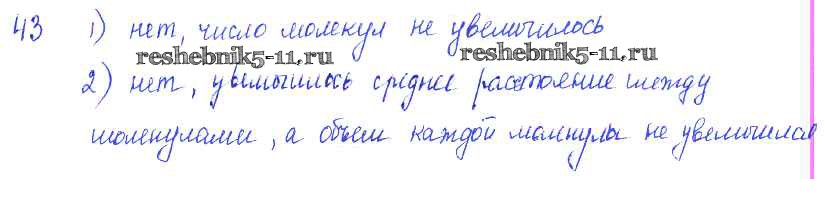 43 1) нет, число молекул не увеличилось
reshebnik5-11.ru reshebnik5-11.ru
2) нет, увеличилось среднее расстояние между
молекулами, а объем каждой молекулы не увеличился